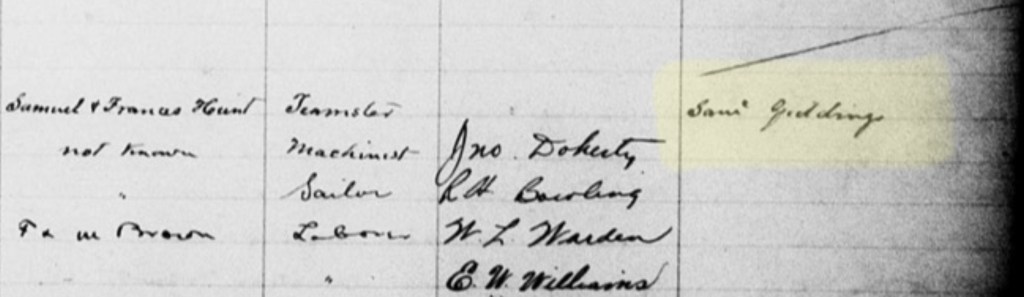 Samuel & Frances Hunt Teamster Saml Giddings
not known Machinist Jno. Doherty
" Sailor R H Bowling
F & M Brown Laborer W. L. Warden
" E. W. Williams